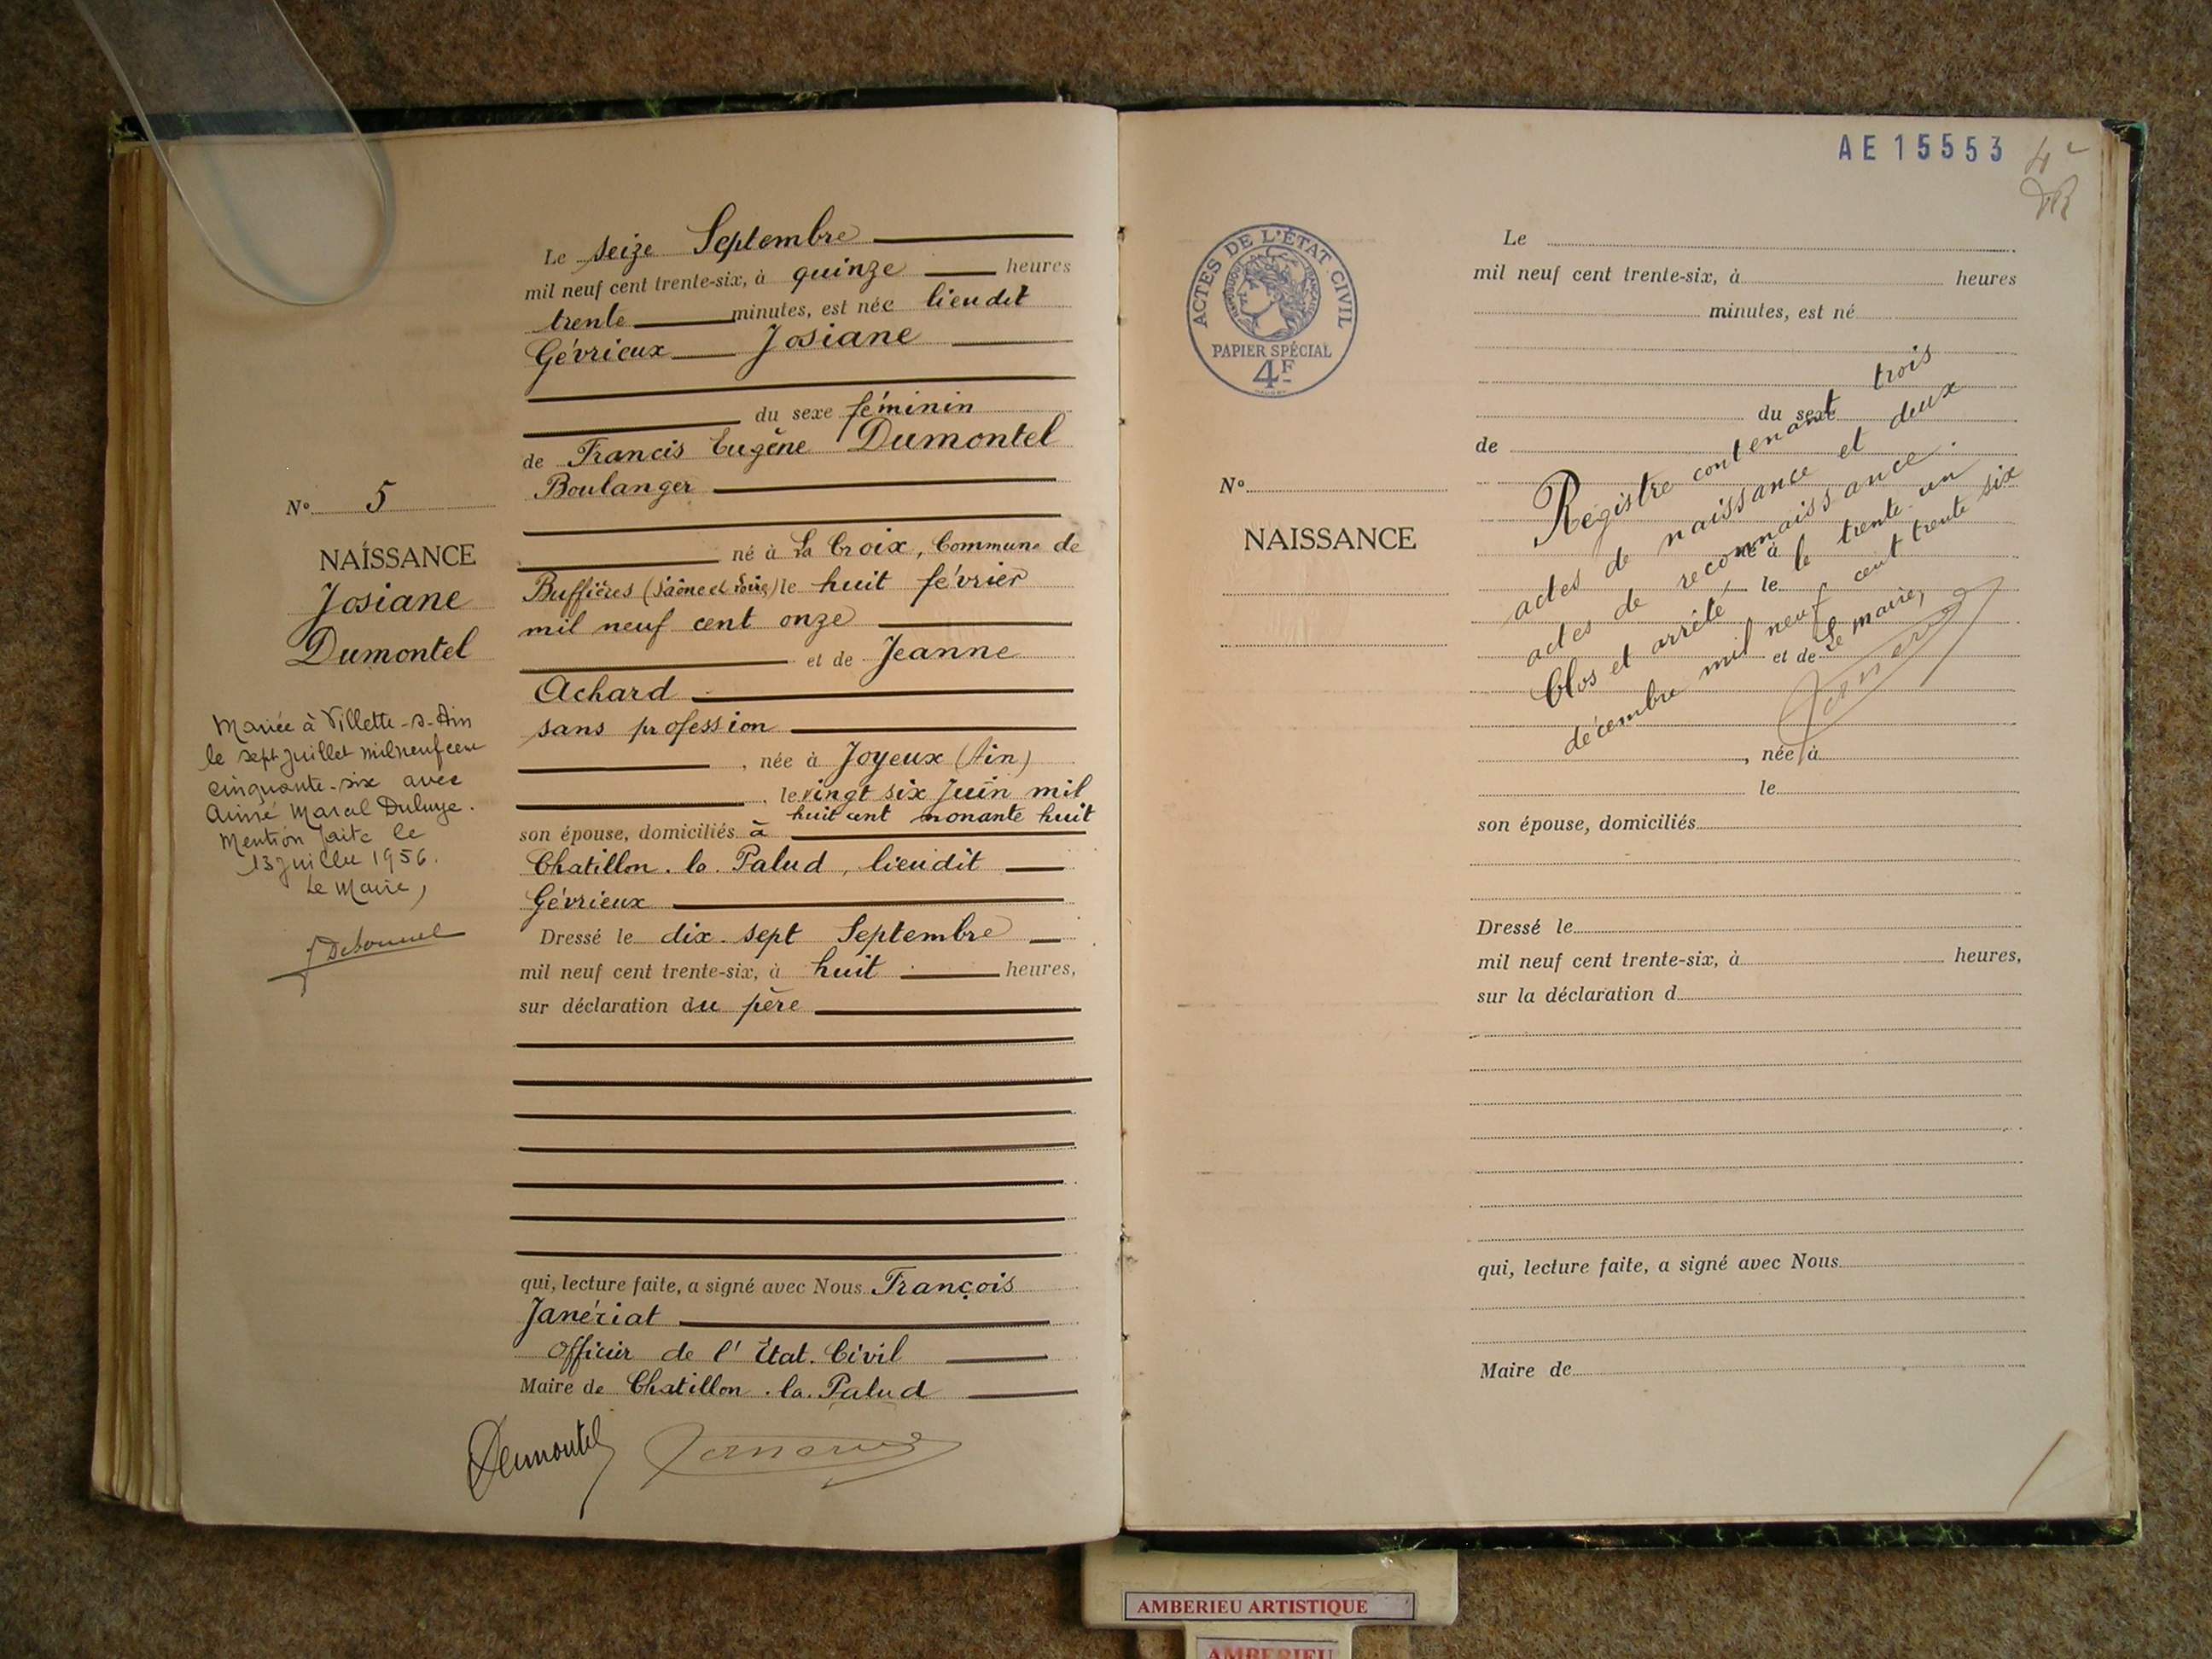 Le seize Septembre
mil neuf cent trente-six, à quinze heures
trente minutes, est née lieu dit
Gévrieux Josiane
du sexe féminin
de Francis Eugène Dumontel
Boulanger
né à La Croix, Commune de
Buffières (Saône et Loire) le huit février
mil neuf cent onze
et de Jeanne
Achard
sans profession
, née à Joyeux (Ain)
, le vingt six Juin mil
huit cent nonante huit
son épouse, domiciliés à
Chatillon.la.Palud, lieu dit
Gévrieux
Dressé le dix.sept Septembre
mil neuf cent trente-six, à huit heures,
sur déclaration du père
qui, lecture faite, a signé avec Nous François
Janériat
Officier de l'Etat.Civil
Maire de Chatillon.la.Palud
Dumontel
N° 5
NAISSANCE
Josiane
Dumontel
Mariée à Villette-s-Ain
le sept juillet mil neuf cent
cinquante-six avec
Aimé Marcel
Mention faite le
13 juillet 1956.
Le Maire,
AE 15553
ACTES DE L'ÉTAT CIVIL
RÉPUBLIQUE FRANÇAISE
PAPIER SPÉCIAL
4F
N°
NAISSANCE
Le
mil neuf cent trente-six, à heures
minutes, est né
du sexe
de
né à
le
et de
, née à
le
son épouse, domiciliés
Dressé le
mil neuf cent trente-six, à heures,
sur la déclaration d
qui, lecture faite, a signé avec Nous
Maire de
Registre contenant trois
actes de naissance et deux
actes de reconnaissance.
Clos et arrêté le trente un
décembre mil neuf cent trente six
Le maire,
AMBERIEU ARTISTIQUE
AMBERIEU